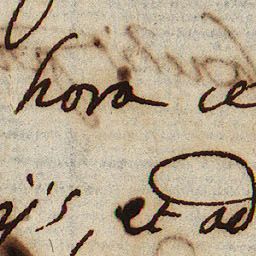 hora ce
js, et ad